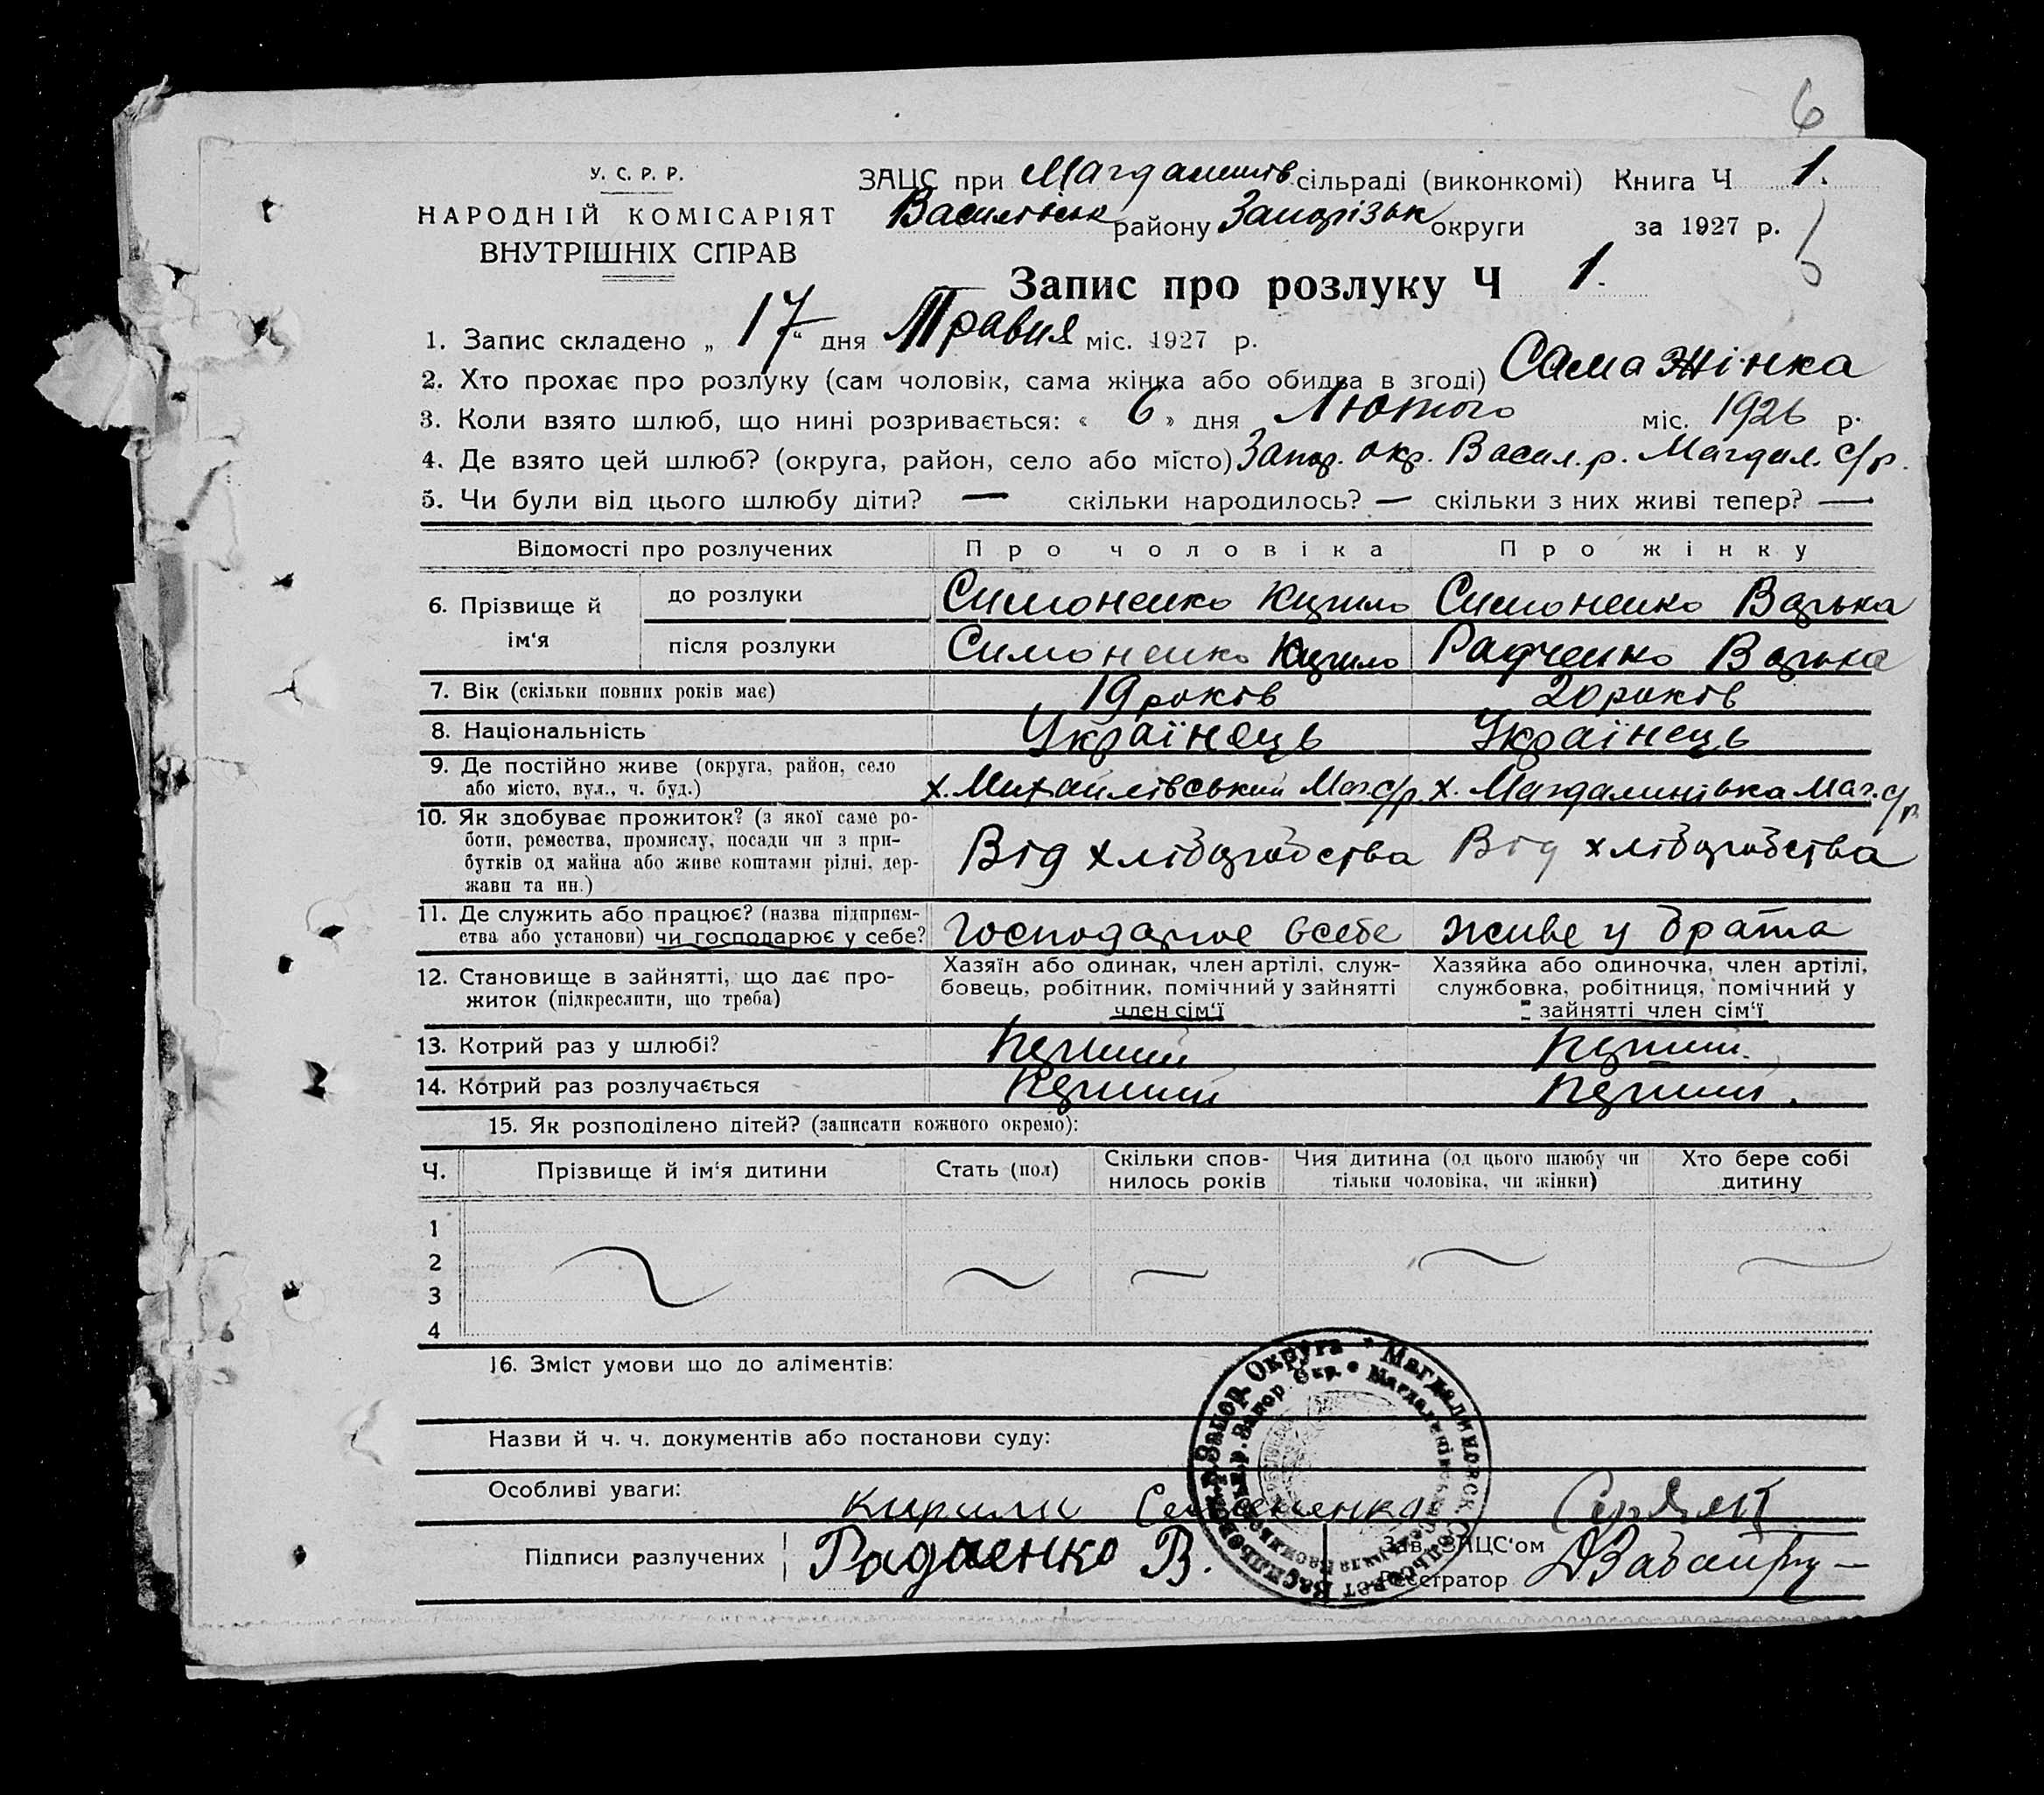 6
У. С. Р. Р.
НАРОДНІЙ КОМІСАРІЯТ
ВНУТРІШНІХ СПРАВ
ЗАЦС при Магдалинів сільраді (виконкомі) Книга Ч 1.
Василівськ району Запорізьк округи за 1927 р.
Запис про розлуку Ч 1.
1. Запис складено „ 17 “ дня Травня міс. 1927 р.
2. Хто прохає про розлуку (сам чоловік, сама жінка або обидва в згоді) Сама жінка
3. Коли взято шлюб, що нині розривається: « 6 » дня Лютого міс. 1926 р.
4. Де взято цей шлюб? (округа, район, село або місто) Запор. окр. Васил. р. Магдал. с/р.
5. Чи були від цього шлюбу діти? — скільки народилось? — скільки з них живі тепер? —
Відомості про розлучених Про чоловіка Про жінку
6. Прізвище й ім‘я
до розлуки Симоненко Кирило Симоненко Варька
після розлуки Симоненко Кирило Радченко Варька
7. Вік (скільки повних років має) 19 років 20 років
8. Національність Українець Українець
9. Де постійно живе (округа, район, село
або місто, вул., ч. буд.) х. Михайлівський Маг.с/р. х. Магдалинівка Маг. с/р
10. Як здобуває прожиток? (з якої саме ро-
боти, ремества, промислу, посади чи з при-
бутків од майна або живе коштами рідні, дер-
жави та ин.)
Від хліборобства Від хліборобства
11. Де служить або працює? (назва підприєм-
ства або установи) чи господарює у себе? Господарює всебе живе у брата
12. Становище в зайнятті, що дає про-
житок (підкреслити, що треба)
Хазяїн або одинак, член артілі, служ-
бовець, робітник, помічний у зайнятті
член сім‘ї
Хазяйка або одиночка, член артілі,
службовка, робітниця, помічний у
зайнятті член сім‘ї
13. Котрий раз у шлюбі? перший перший.
14. Котрий раз розлучається перший перший.
15. Як розподілено дітей? (записати кожного окремо):
Ч. Прізвище й ім‘я дитини Стать (пол) Скільки спов-
нилось років Чия дитина (од цього шлюбу чи
тільки чоловіка, чи жінки) Хто бере собі
дитину
1
2
3
4
16. Зміст умови що до аліментів:
Назви й ч. ч. документів або постанови суду:
Особливі уваги:
Кирило
Підписи разлучених Радченко В. Зав. ЗАЦС‘ом
Реєстратор
Магдалиновск. Сельсовет Васильевск. р. Запор. Округа